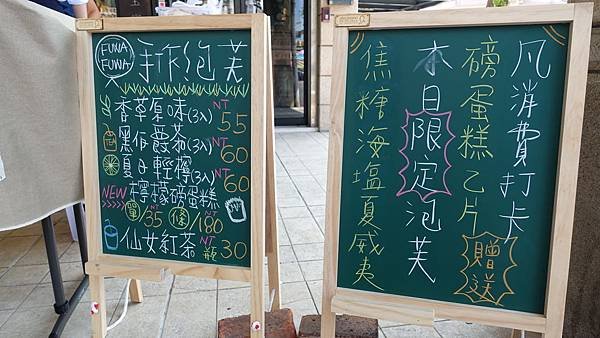 FUWA FUWA
手作泡芙
香草原味(3入) NT 55
黑伯爵茶(3入) NT 60
夏日輕檸(3入) NT 60
NEW 檸檬磅蛋糕
單 NT/35 條 NT/180
仙女紅茶 NT/瓶 30
凡消費打卡
磅蛋糕乙片 贈送
本日限定泡芙
焦糖海塩夏威夷